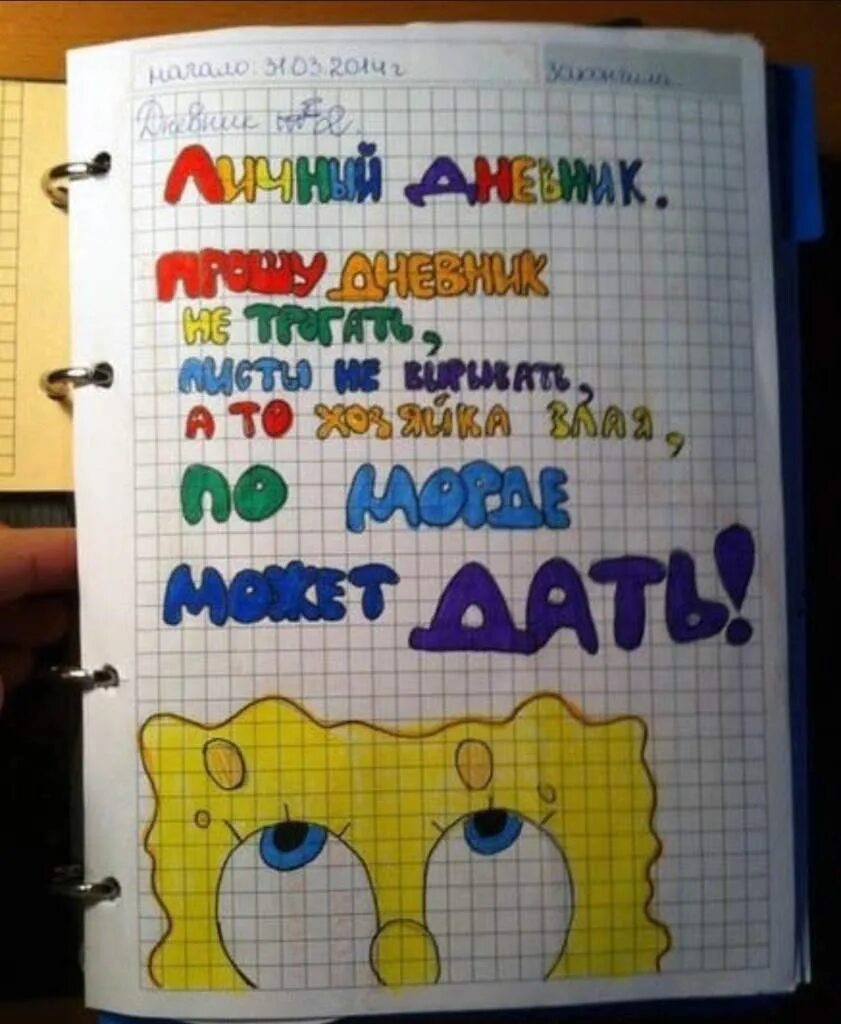 начало: 31.03.2014 г
закончила
Дневник № 2.
Личный дневник.
Прошу дневник
не трогать,
листы не вырывать,
а то хозяйка злая,
по морде
может дать!